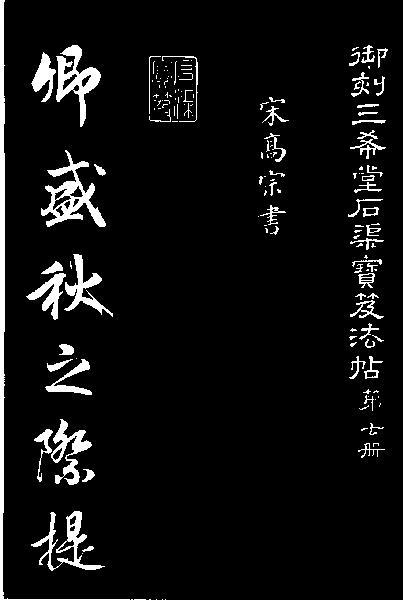 御刻三希堂石渠寶笈法帖第七册
宋高宗書
卿盛秋之際提